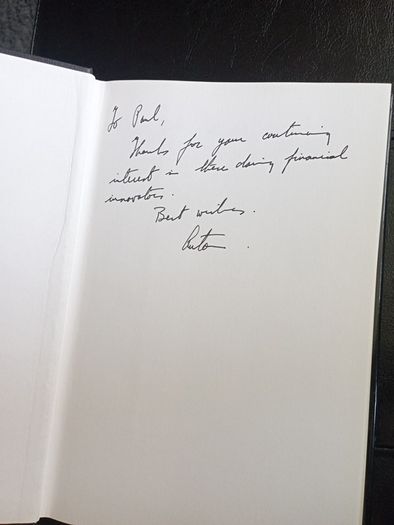 To Paul,
Thanks for your continuing
interest in these daring financial
innovators.
Best wishes.
Anton.